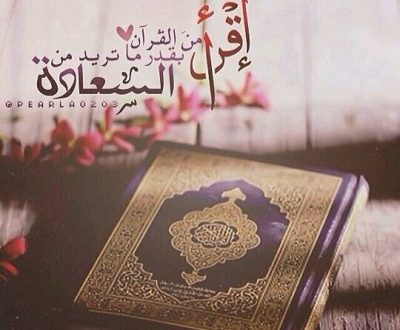 إقْرأ
من القرآن
بقدر ما تريد من
السعادة
@PEARLA0203